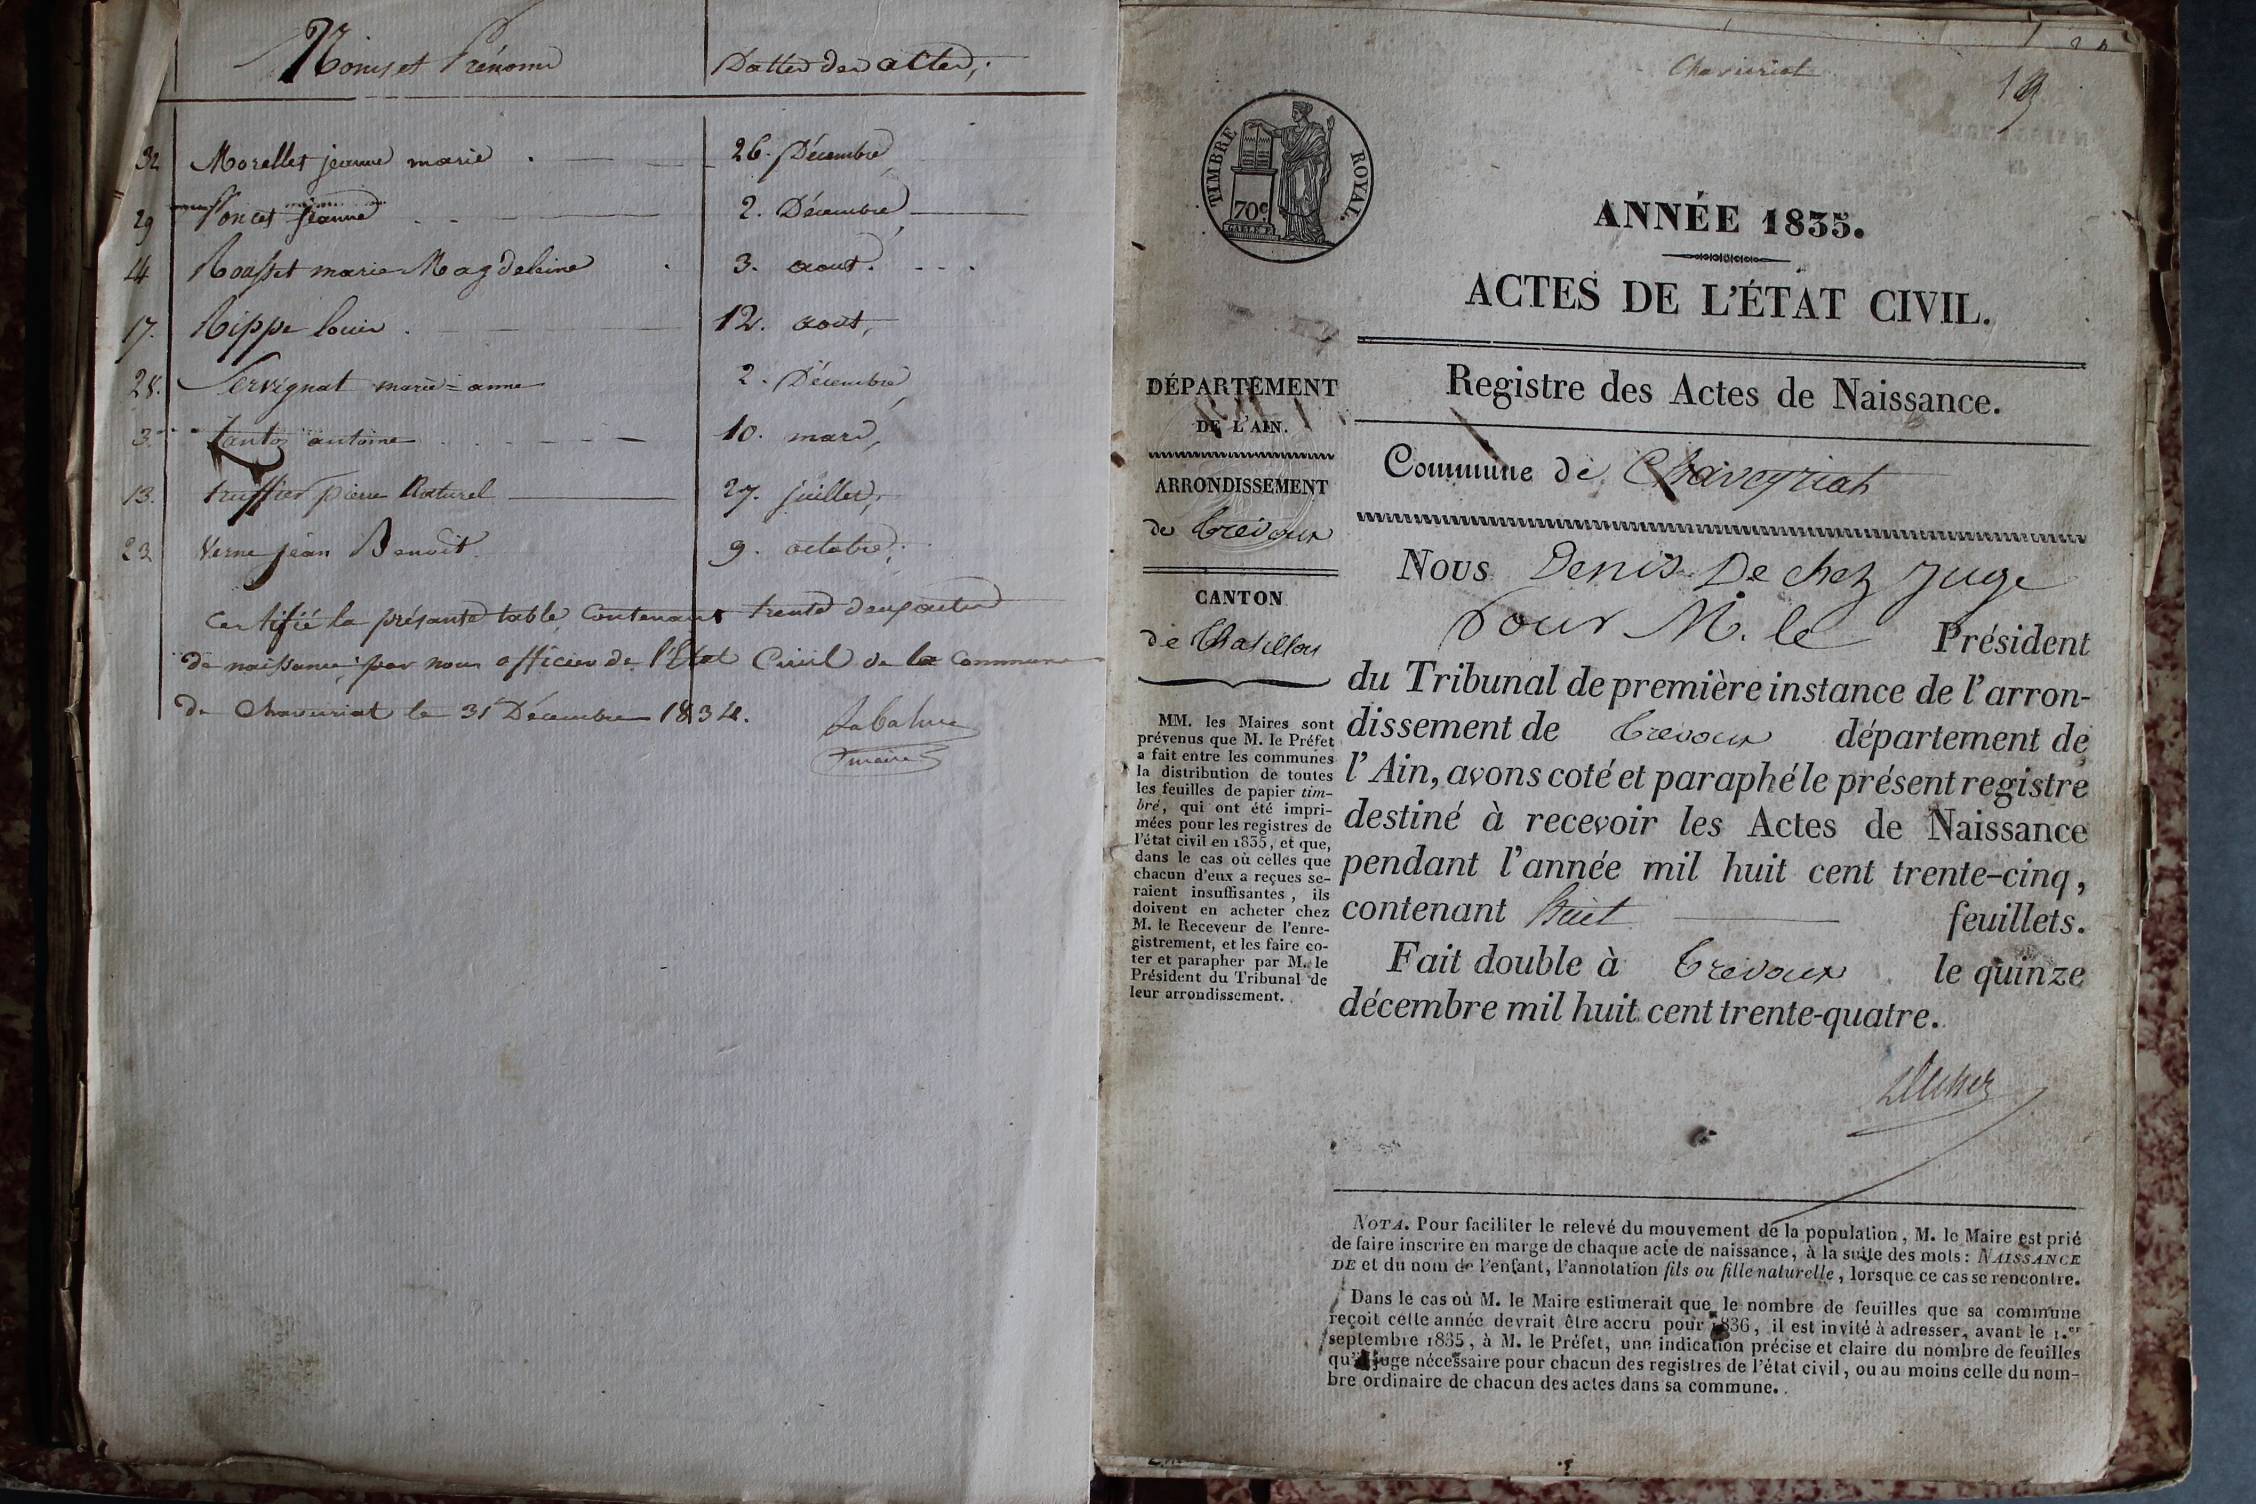 Noms et Prénoms Dattes des actes,
32 Morellet jeanne marie 26. Décembre
29 Poncet jeanne 2. Décembre
14 Rousset marie Magdeleine 3. aout.
17. Rippe louis 12. aout,
28. Servignat marie=anne 2. Décembre
3. Tantoz antoine 10. mars,
13. truffier pierre Naturel 27. juillet,
23 Verne jean Benoit 9. octobre,
Certifié la présante table Contenant trente deux actes
de naissance, par nous officier de l'Etat Civil de la Commune
de Chaveiriat le 31 Décembre 1834.
maire
Chaveiriat
19
TIMBRE ROYAL.
70c
ANNÉE 1835.
ACTES DE L'ÉTAT CIVIL.
Registre des Actes de Naissance.
Commune de Chaveyriat
DÉPARTEMENT
DE L'AIN.
ARRONDISSEMENT
de Trévoux
CANTON
de Chatillon
MM. les Maires sont
prévenus que M. le Préfet
a fait entre les communes
la distribution de toutes
les feuilles de papier tim-
bré, qui ont été impri-
mées pour les registres de
l'état civil en 1835, et que,
dans le cas où celles que
chacun d'eux a reçues se-
raient insuffisantes, ils
doivent en acheter chez
M. le Receveur de l'enre-
gistrement, et les faire co-
ter et parapher par M. le
Président du Tribunal de
leur arrondissement.
Nous Denis Dechez Juge
Pour M. le Président
du Tribunal de première instance de l'arron-
dissement de Trevoux département de
l'Ain, avons coté et paraphé le présent registre
destiné à recevoir les Actes de Naissance
pendant l'année mil huit cent trente-cinq,
contenant huit feuillets.
Fait double à Trevoux le quinze
décembre mil huit cent trente-quatre.
Dechez
NOTA. Pour faciliter le relevé du mouvement de la population, M. le Maire est prié
de faire inscrire en marge de chaque acte de naissance, à la suite des mots: NAISSANCE
DE et du nom de l'enfant, l'annotation fils ou fille naturelle, lorsque ce cas se rencontre.
Dans le cas où M. le Maire estimerait que le nombre de feuilles que sa commune
reçoit cette année devrait être accru pour 1836, il est invité à adresser, avant le 1.er
septembre 1835, à M. le Préfet, une indication précise et claire du nombre de feuilles
qu'il juge nécessaire pour chacun des registres de l'état civil, ou au moins celle du nom-
bre ordinaire de chacun des actes dans sa commune.